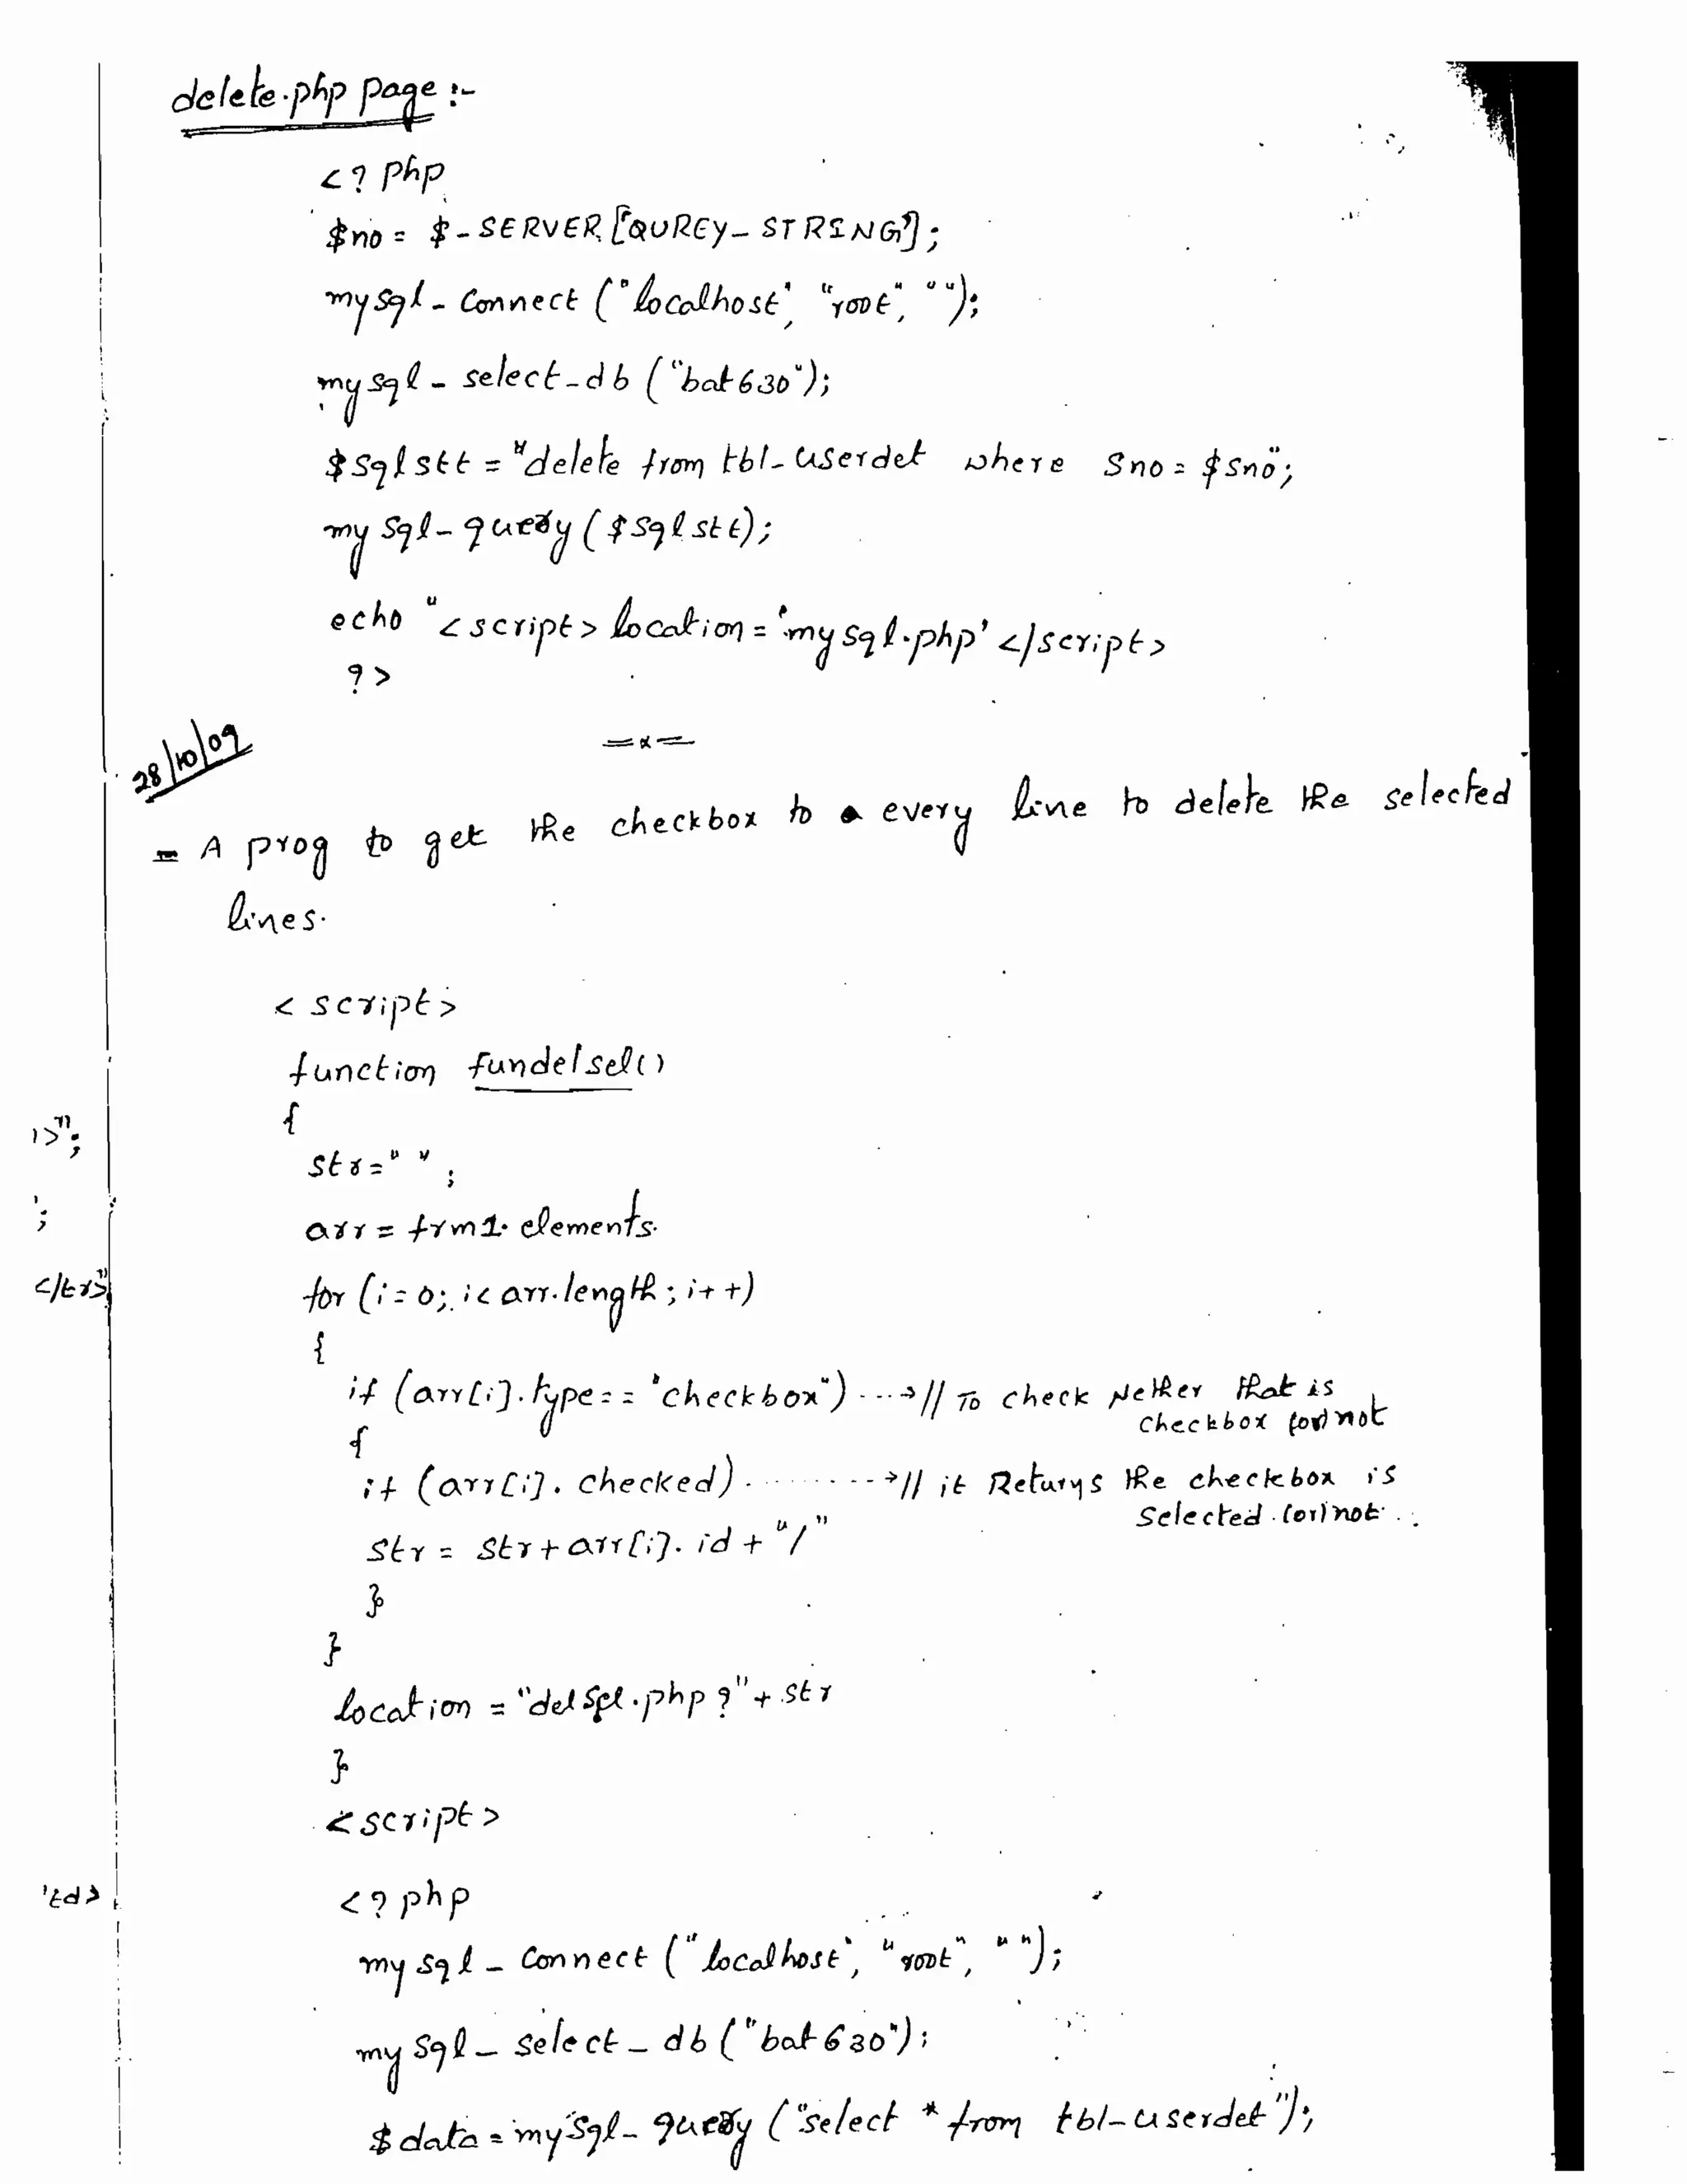 delete.php page :-
<? php
$no = $_SERVER['QUREY_STRING'];
mysql_connect ("localhost", "root", "");
mysql_select_db ("bat630");
$sqlstt = "delete from tbl_userdet where sno = $sno";
mysql_query ($sqlstt);
echo "<script> location = 'mysql.php' </script>
?>
=x=
28/10/09
= A prog to get the checkbox to a every line to delete the selected
lines.
<script>
function fundelsel()
{
i>";
str=" ";
';
arr = frm1.elements.
</tr>"
for (i=0; i< arr.length; i++)
{
if (arr[i].type== "checkbox") ---> // To check Nether that is
checkbox (or) not
{
if (arr[i].checked) --------> // it Returys the checkbox is
Selected (or) not.
str = str+arr[i].id + "/"
}
}
location = "delsel.php?"+str
}
<script>
'td>
<?php
mysql_connect ("localhost", "root", "");
mysql_select_db ("bat630");
$data = mysql_query ("select * from tbl_userdet");